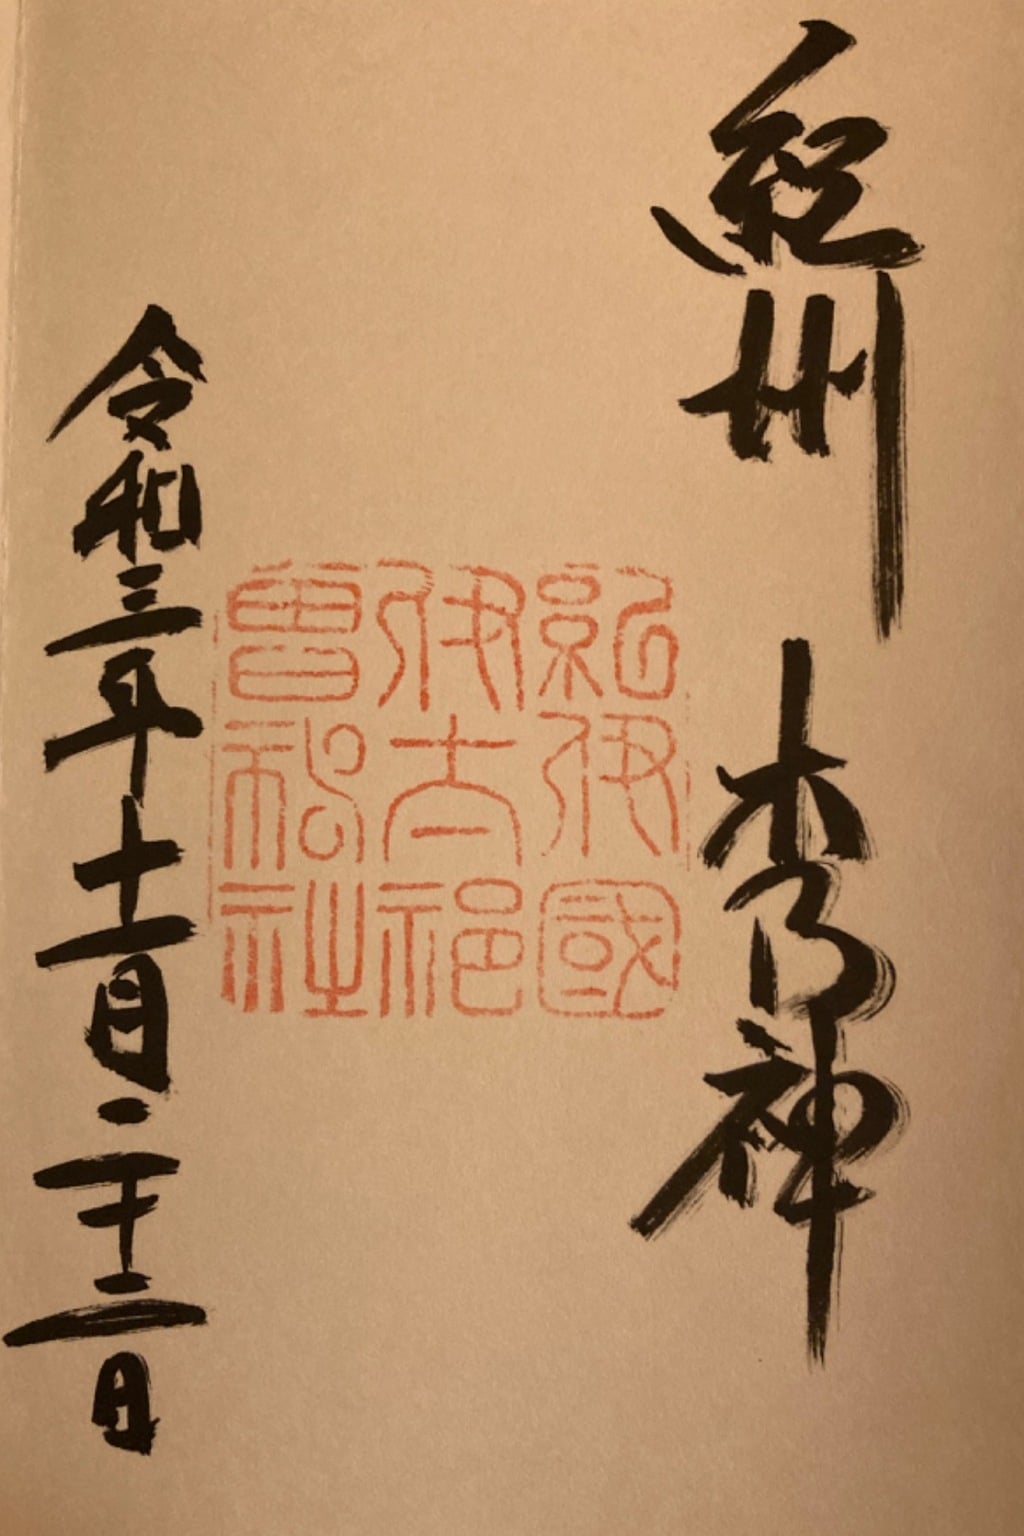 紀州 木乃神
紀伊國
伊太祁
曾神社
令和三年十一月二十二日